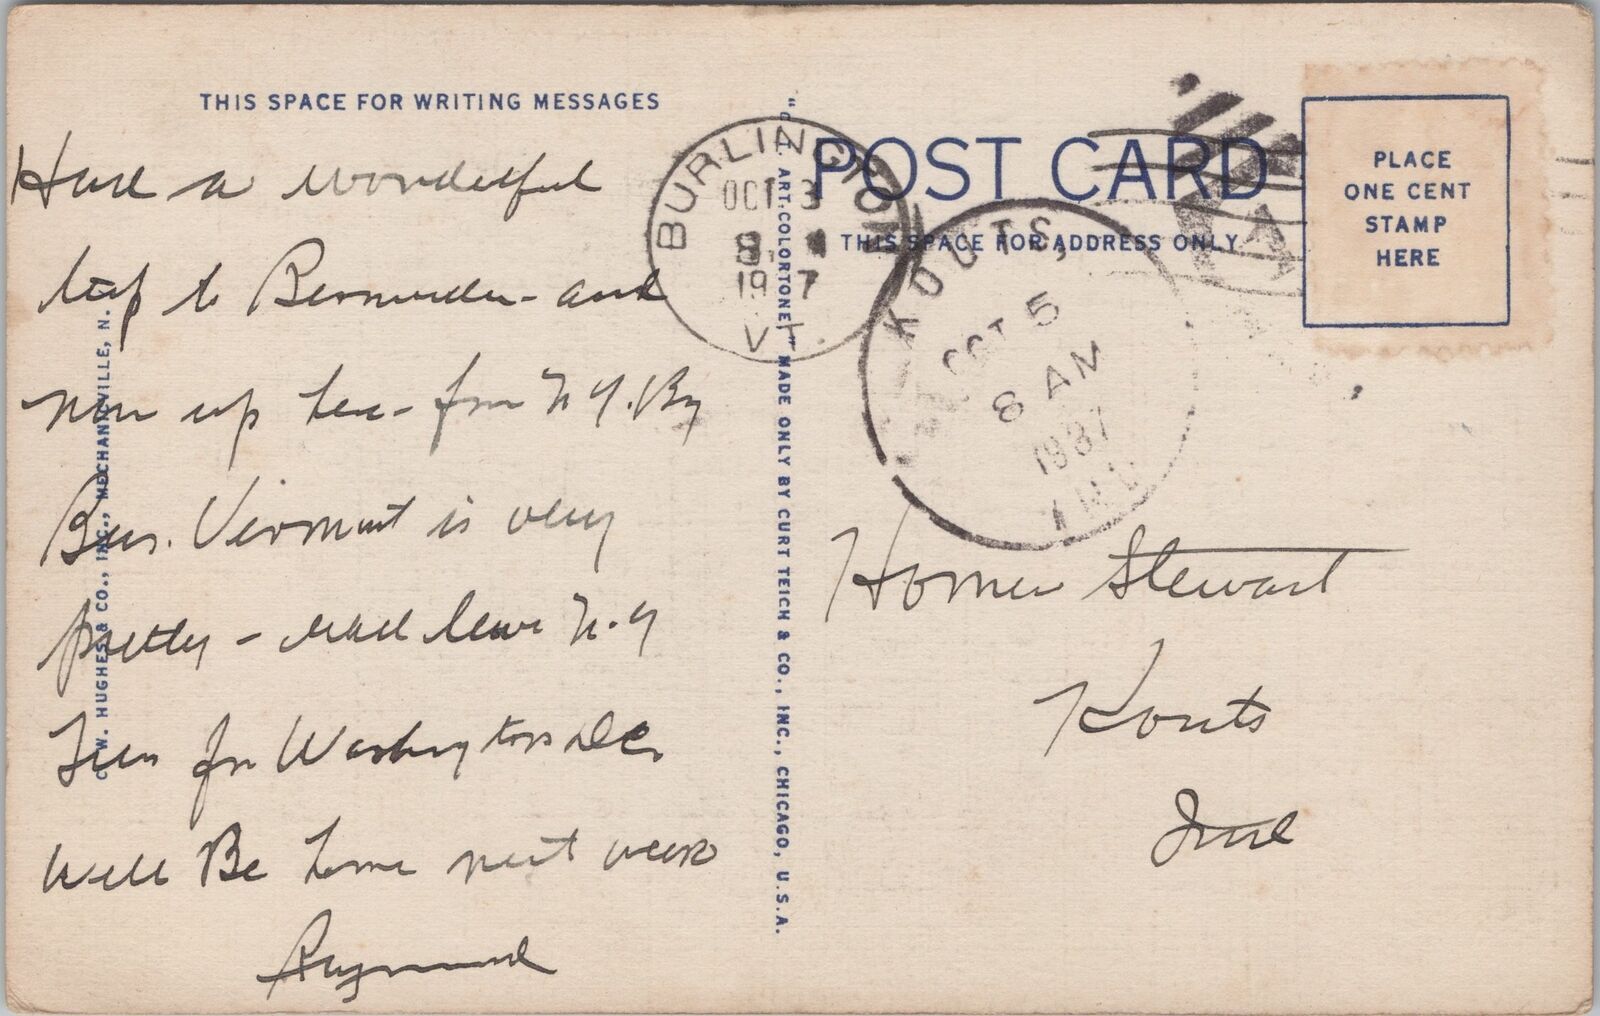 THIS SPACE FOR WRITING MESSAGES
Had a wonderful
trip to Bermuda - and
now up here - from N.Y. By
Bus. Vermont is very
pretty - will leave N.Y
Tues for Washington D.C.
Will Be home next week
Raymond
C. W. HUGHES & CO., INC., MECHANICVILLE, N.
ART-COLORTONE" MADE ONLY BY CURT TEICH & CO., INC., CHICAGO, U.S.A.
BURLINGTON
OCT 3
1937
VT.
POST CARD
THIS SPACE FOR ADDRESS ONLY
KOUTS,
OCT 5
8 AM
1937
IND.
PLACE
ONE CENT
STAMP
HERE
Homer Stewart
Kouts
Ind